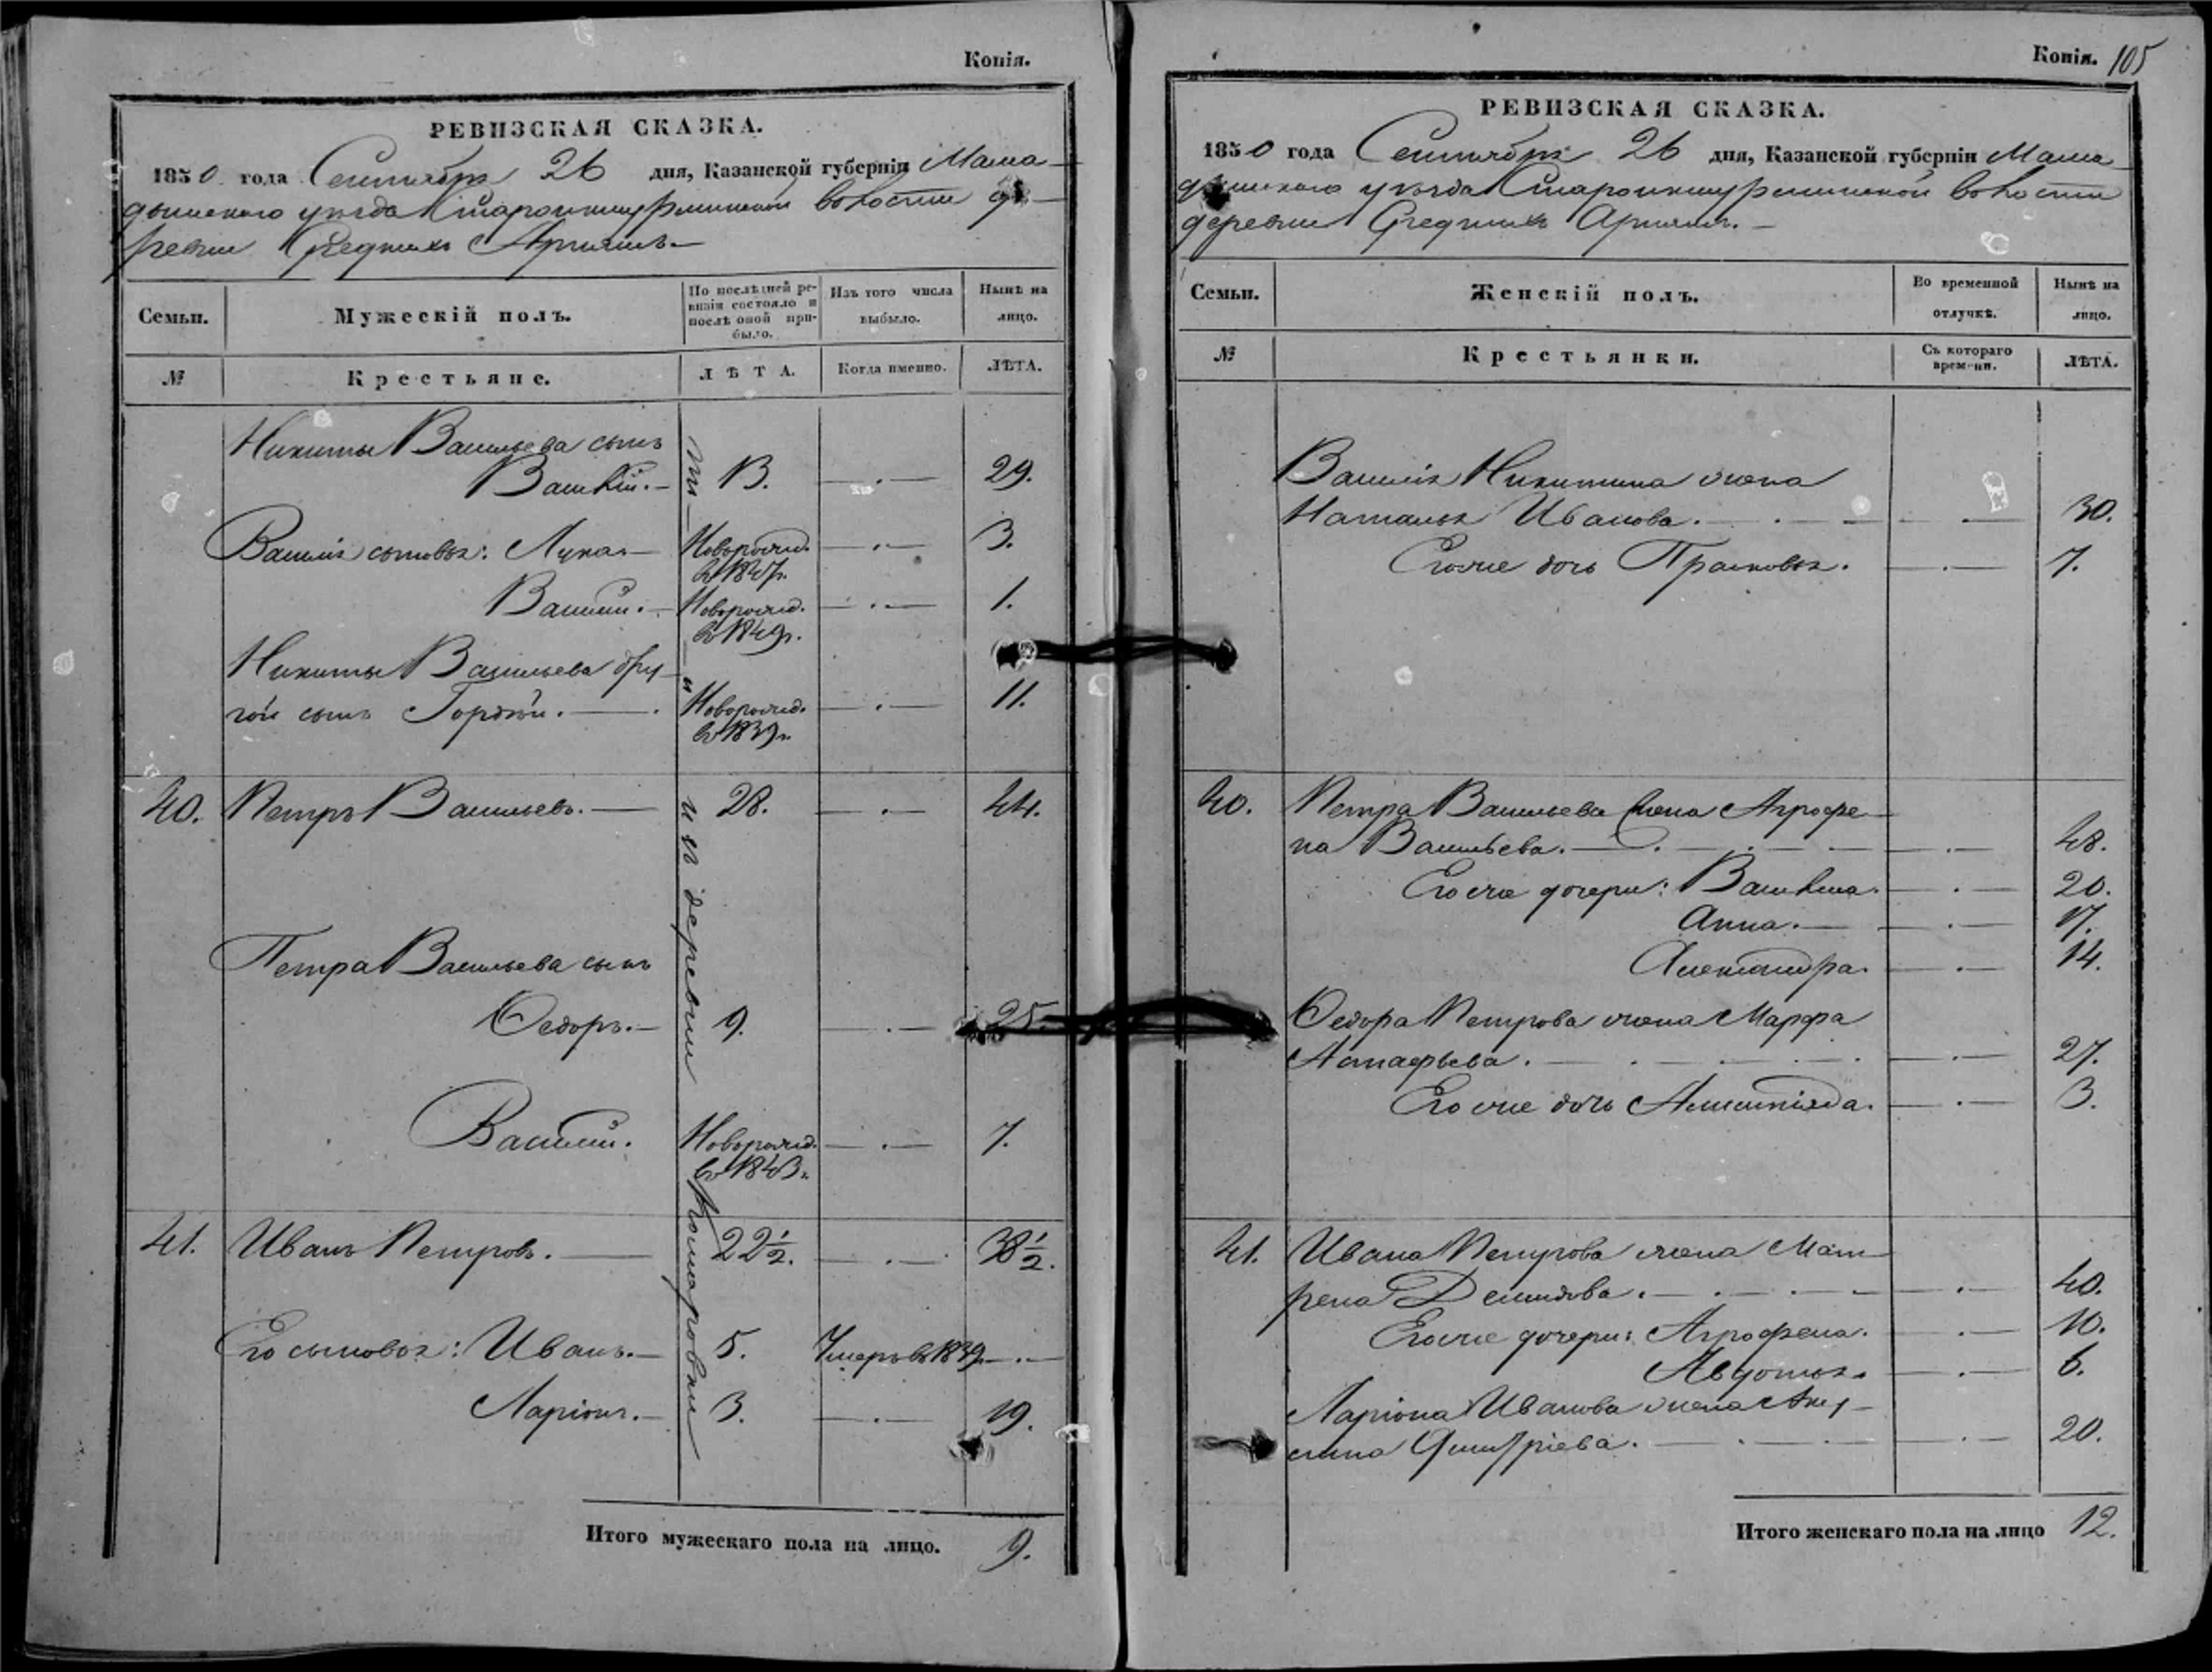 Копія.
РЕВИЗСКАЯ СКАЗКА.
1850 года Сентября 26 дня, Казанской губерніи Мама-
дышскаго уѣзда волости де-
ревни Среднихъ
Семьи.
Мужескій полъ.
По послѣдней ре-
визіи состояло и
послѣ оной при-
было.
Изъ того числа
выбыло.
Нынѣ на
лицо.
№
Крестьяне.
ЛѢТА.
Когда именно.
ЛѢТА.
Никиты Васильева сынъ
13. 29.
Василія сыновья: Лука. Новорожд. 3.
въ 1847г.
Василій. Новорожд. 1.
въ 1849г.
Никиты Васильева дру-
гой сынъ Гордѣй. Новорожд. 11.
въ 1839г.
40. Петръ Васильевъ. 28. 44.
Петра Васильева сынъ
Ѳедоръ. 9. 25.
Василій. Новорожд. 7.
въ 1843г.
41. Иванъ Петровъ. 22½. 38½.
Его сыновья: Иванъ. 5. Умеръ въ 1839
Ларіонъ. 3. 19.
изъ деревни Комаровки
Итого мужескаго пола на лицо. 9.
Копія. 105
РЕВИЗСКАЯ СКАЗКА.
1850 года Сентября 26 дня, Казанской губерніи Мама-
дышскаго уѣзда волости
деревни Среднихъ
Семьи.
Женскій полъ.
Во временной
отлучкѣ.
Нынѣ на
лицо.
№
Крестьянки.
Съ котораго
времени.
ЛѢТА.
Василія Никитина жена
Наталья Иванова. 30.
Его же дочь Прасковья. 7.
40. Петра Васильева жена Агрофе-
на Васильева. 48.
Его же дочери: 20.
Анна. 17.
Александра. 14.
Ѳедора Петрова жена Марфа
Астафьева. 27.
Его же дочь 3.
41. Ивана Петрова жена Мат-
рена Демидова. 40.
Его же дочери: Агрофена. 10.
Авдотья. 6.
Ларіона Иванова жена Аку-
лина Дмитріева. 20.
Итого женскаго пола на лицо 12.